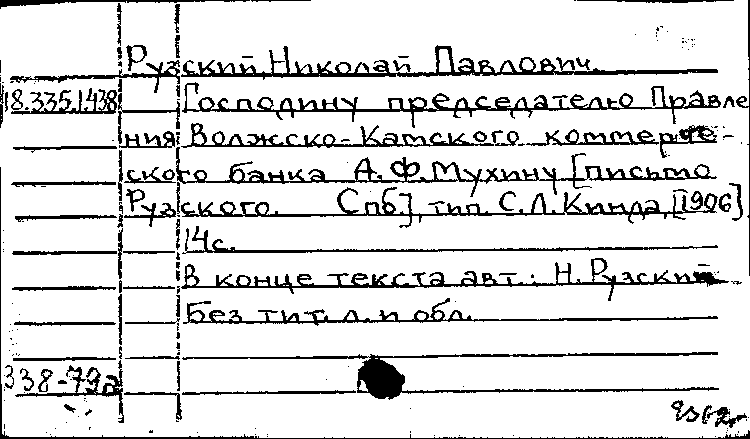 Рузский, Николай Павлович.
18.335.1438 Господину председателю Правле
ния Волжско-Камского коммерче-
ского банка А.Ф. Мухину [письмо
Рузского. Спб.], тип. С.Л. Кинда, [1906].
14с.
В конце текста авт.: Н. Рузский
Без тит. л. и обл.
338-79г